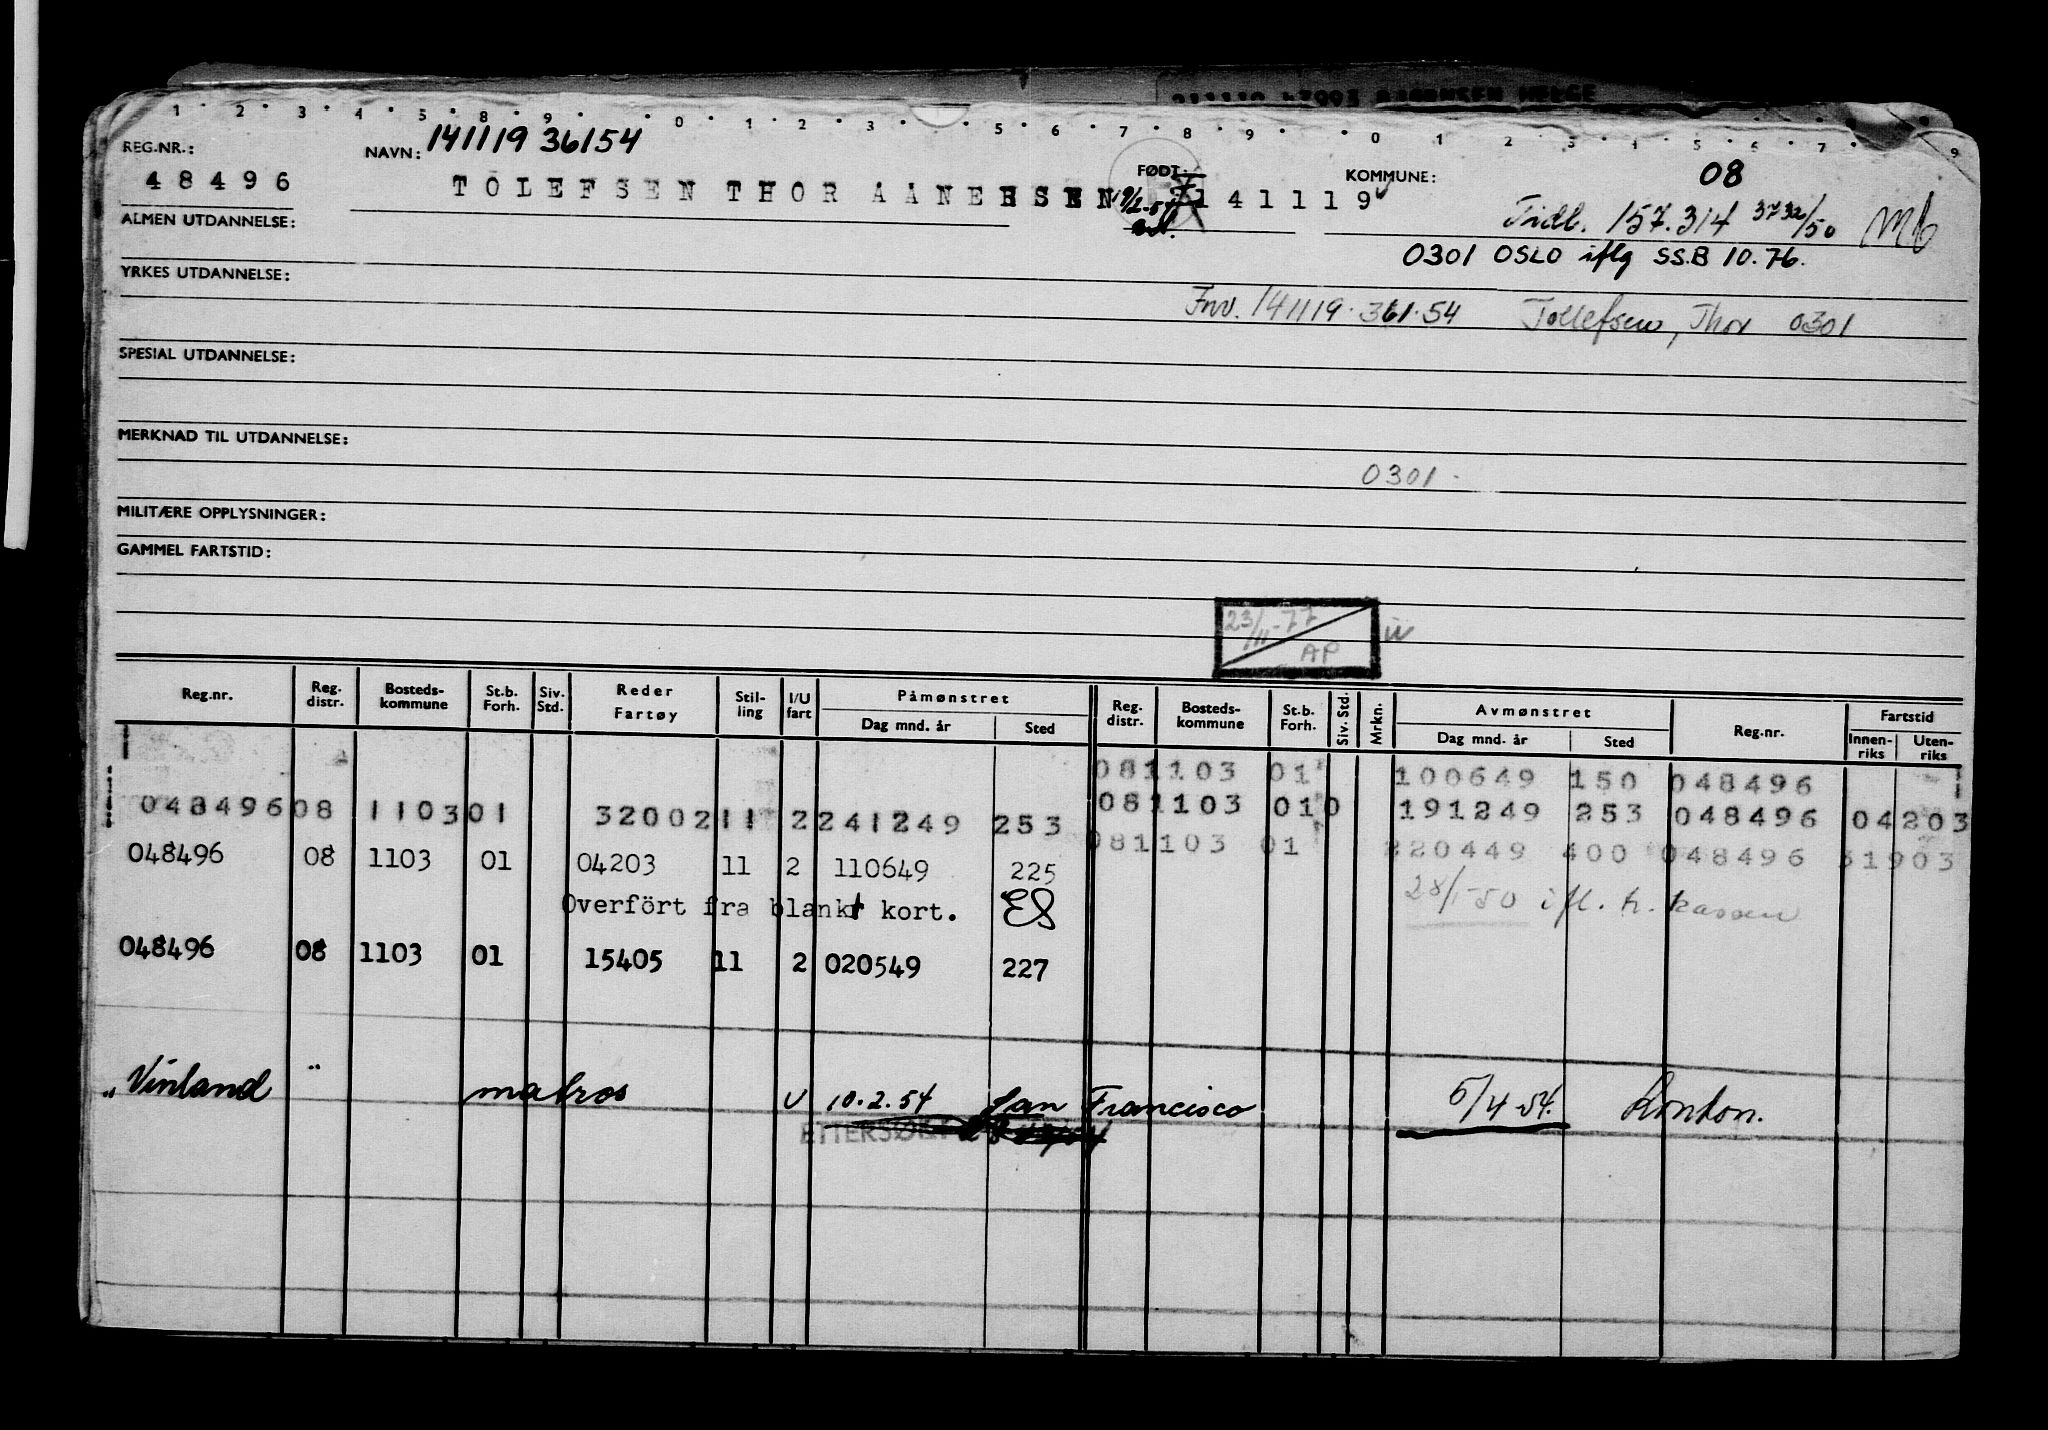 211119 47993 BJØRNSEN HELGE
1 2 3 4 5 8 9 0 1 2 3 5 6 7 8 9 0 1 2 3 4 5 6 7 9
REG.NR.: NAVN: 141119 36154 FØDT: KOMMUNE: 08
48496 TOLEFSEN THOR AANENSEN 141119
ALMEN UTDANNELSE: Tidl. 157.314 3732/50 Mb
0301 OSLO iflg SS.B 10.76.
YRKES UTDANNELSE:
Fnr. 141119.361.54 Tollefsen, Thor 0301
SPESIAL UTDANNELSE:
MERKNAD TIL UTDANNELSE:
0301.
MILITÆRE OPPLYSNINGER:
GAMMEL FARTSTID:
23/11-77
AP
Reg.nr. Reg. distr. Bosteds-kommune St.b. Forh. Siv. Std. Reder Fartøy Stil-ling I/U fart Påmønstret Dag mnd. år Sted Reg. distr. Bosteds-kommune St.b. Forh. Siv. Std. Mrkn. Avmønstret Dag mnd. år Sted Reg.nr. Fartstid Innen-riks Uten-riks
081103 01 100649 150 048496
048496 08 1103 01 3200211 2 241249 253 081103 010 191249 253 048496 04203
048496 08 1103 01 04203 11 2 110649 225 081103 01 220449 400 048496 31903
Overfört fra blankt kort. ES 28/1-50 ifl. tr. kassen
048496 08 1103 01 15405 11 2 020549 227
"Vinland" matros U 10.2.54 San Francisco 5/4-54. London.
ETTERSØKT